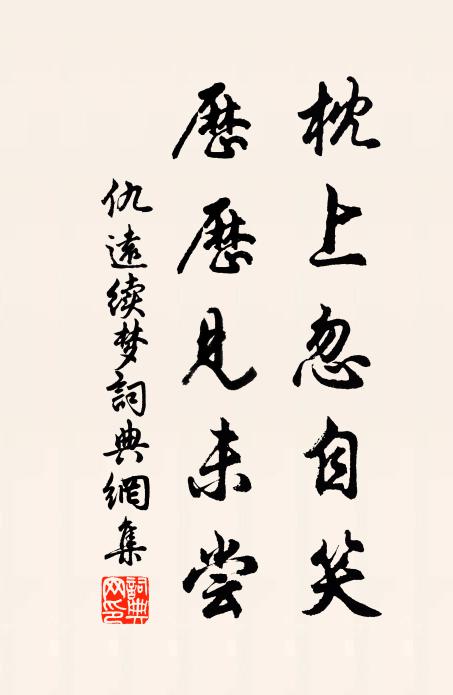 枕上忽自笑
歷歷見未尝
仇遠续梦詞典網集
詞典网印